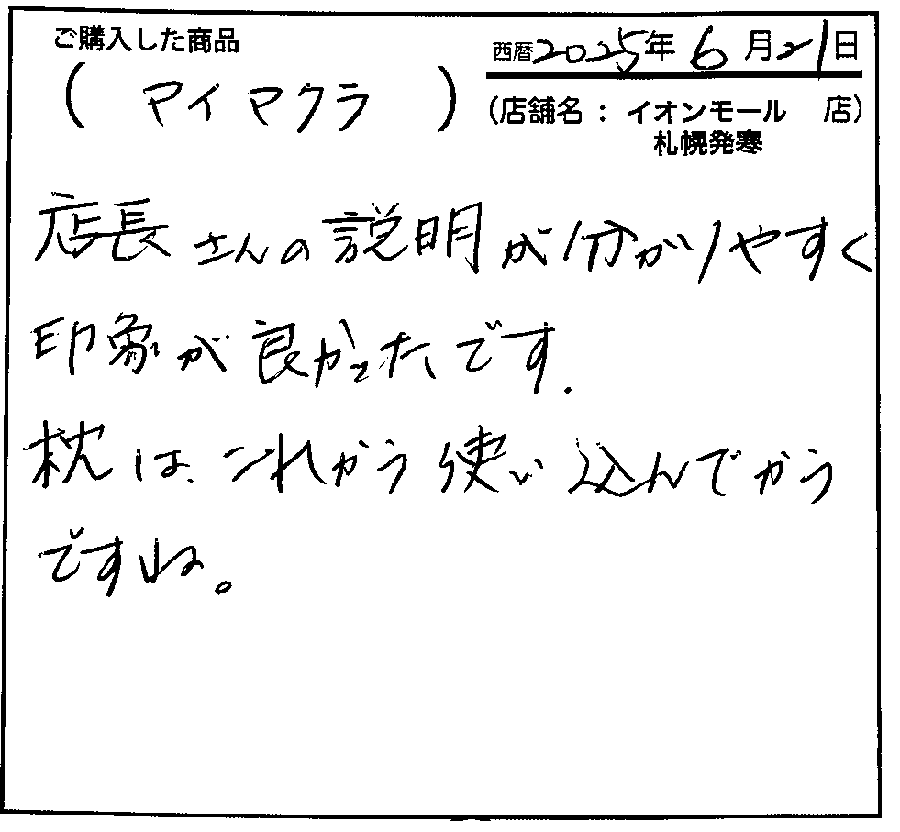 ご購入した商品
(マイマクラ)
西暦2025年6月21日
(店舗名：イオンモール 店)
札幌発寒
店長さんの説明が分かりやすく
印象が良かったです.
枕は、これから使い込んでから
ですね。